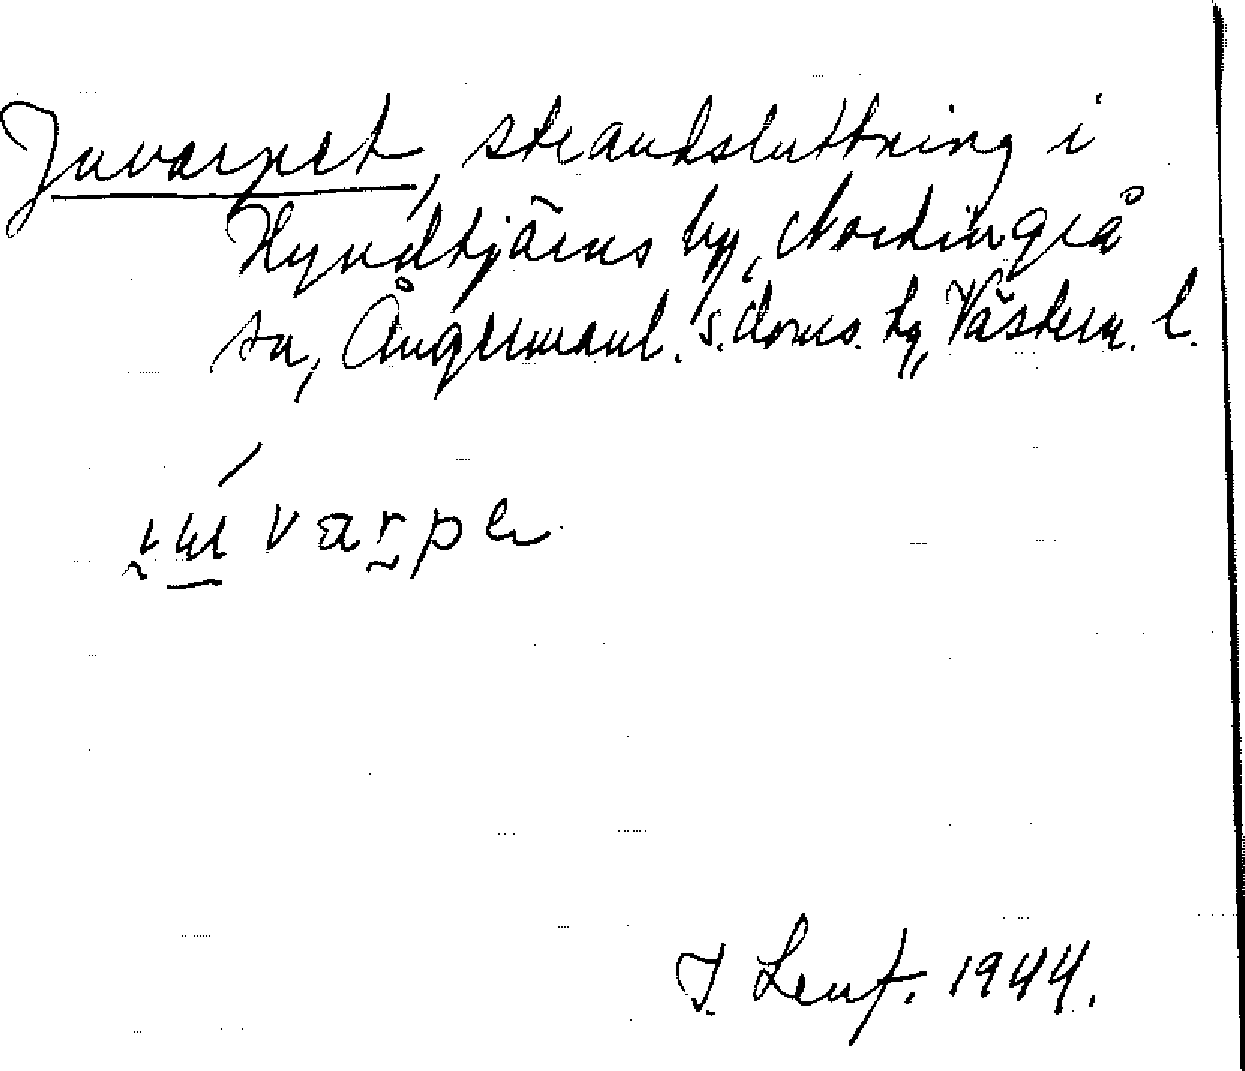 Juvarpet, strandsluttning i
Hyndtjärns by, Nordingrå
sn, Ångermanl. s. doms. hg, Västern. l.
J. Lenf. 1944.